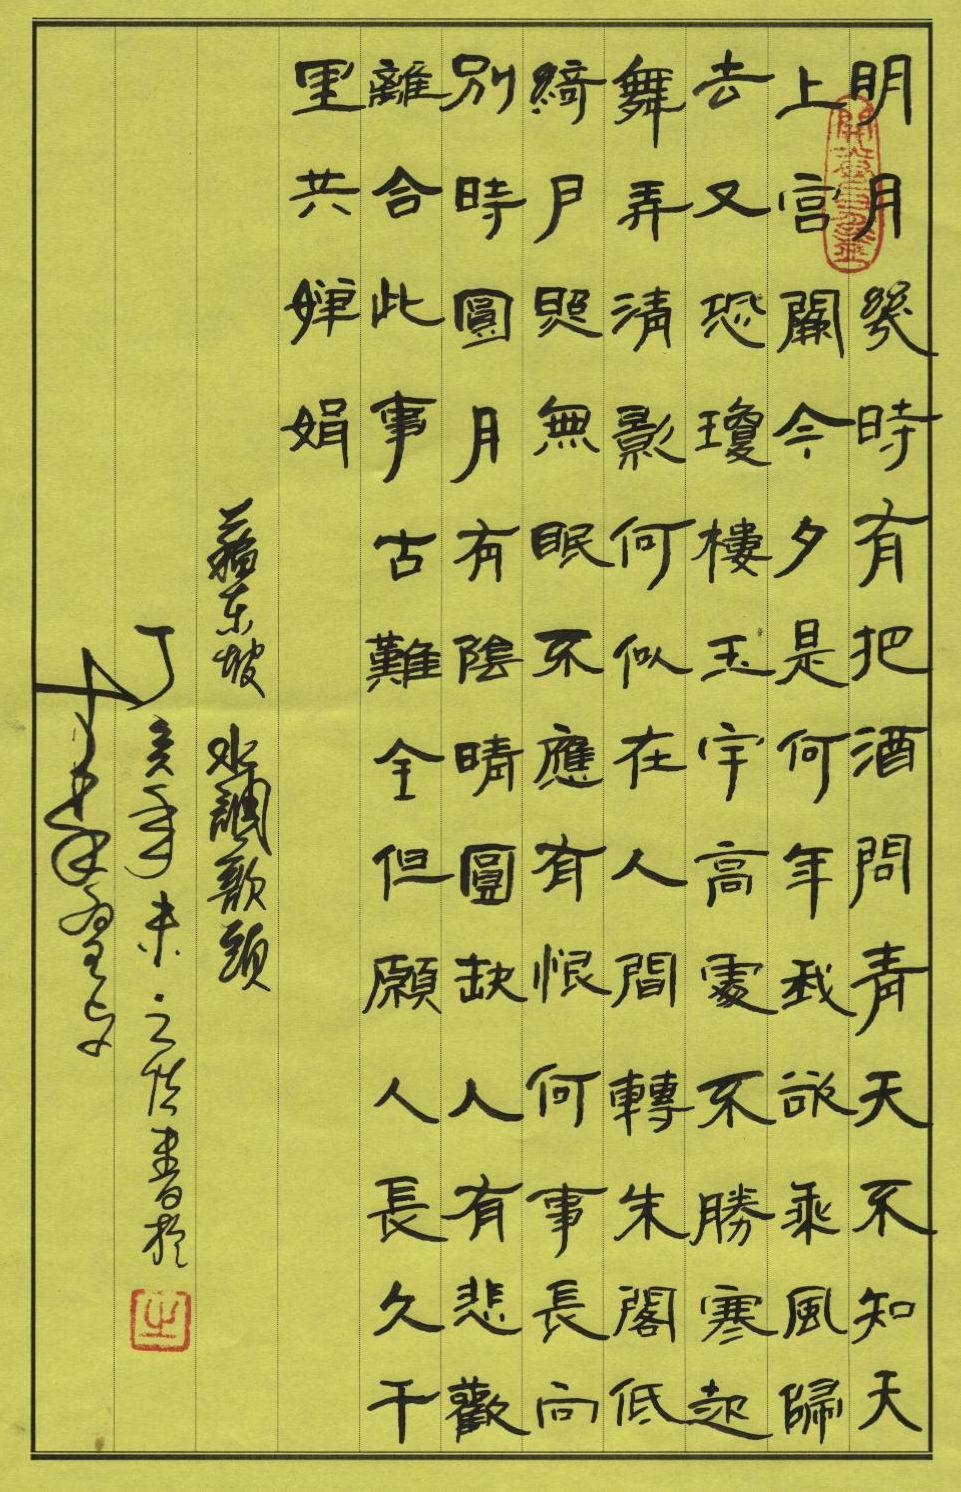 明月幾時有把酒問青天不知天
上宮闕今夕是何年我欲乘風歸
去又恐瓊樓玉宇高處不勝寒起
舞弄清影何似在人間轉朱閣低
綺戶照無眠不應有恨何事長向
別時圓月有陰晴圓缺人有悲歡
離合此事古難全但願人長久千
里共嬋娟
蘇东坡 水調歌頭
丁亥年末之書於